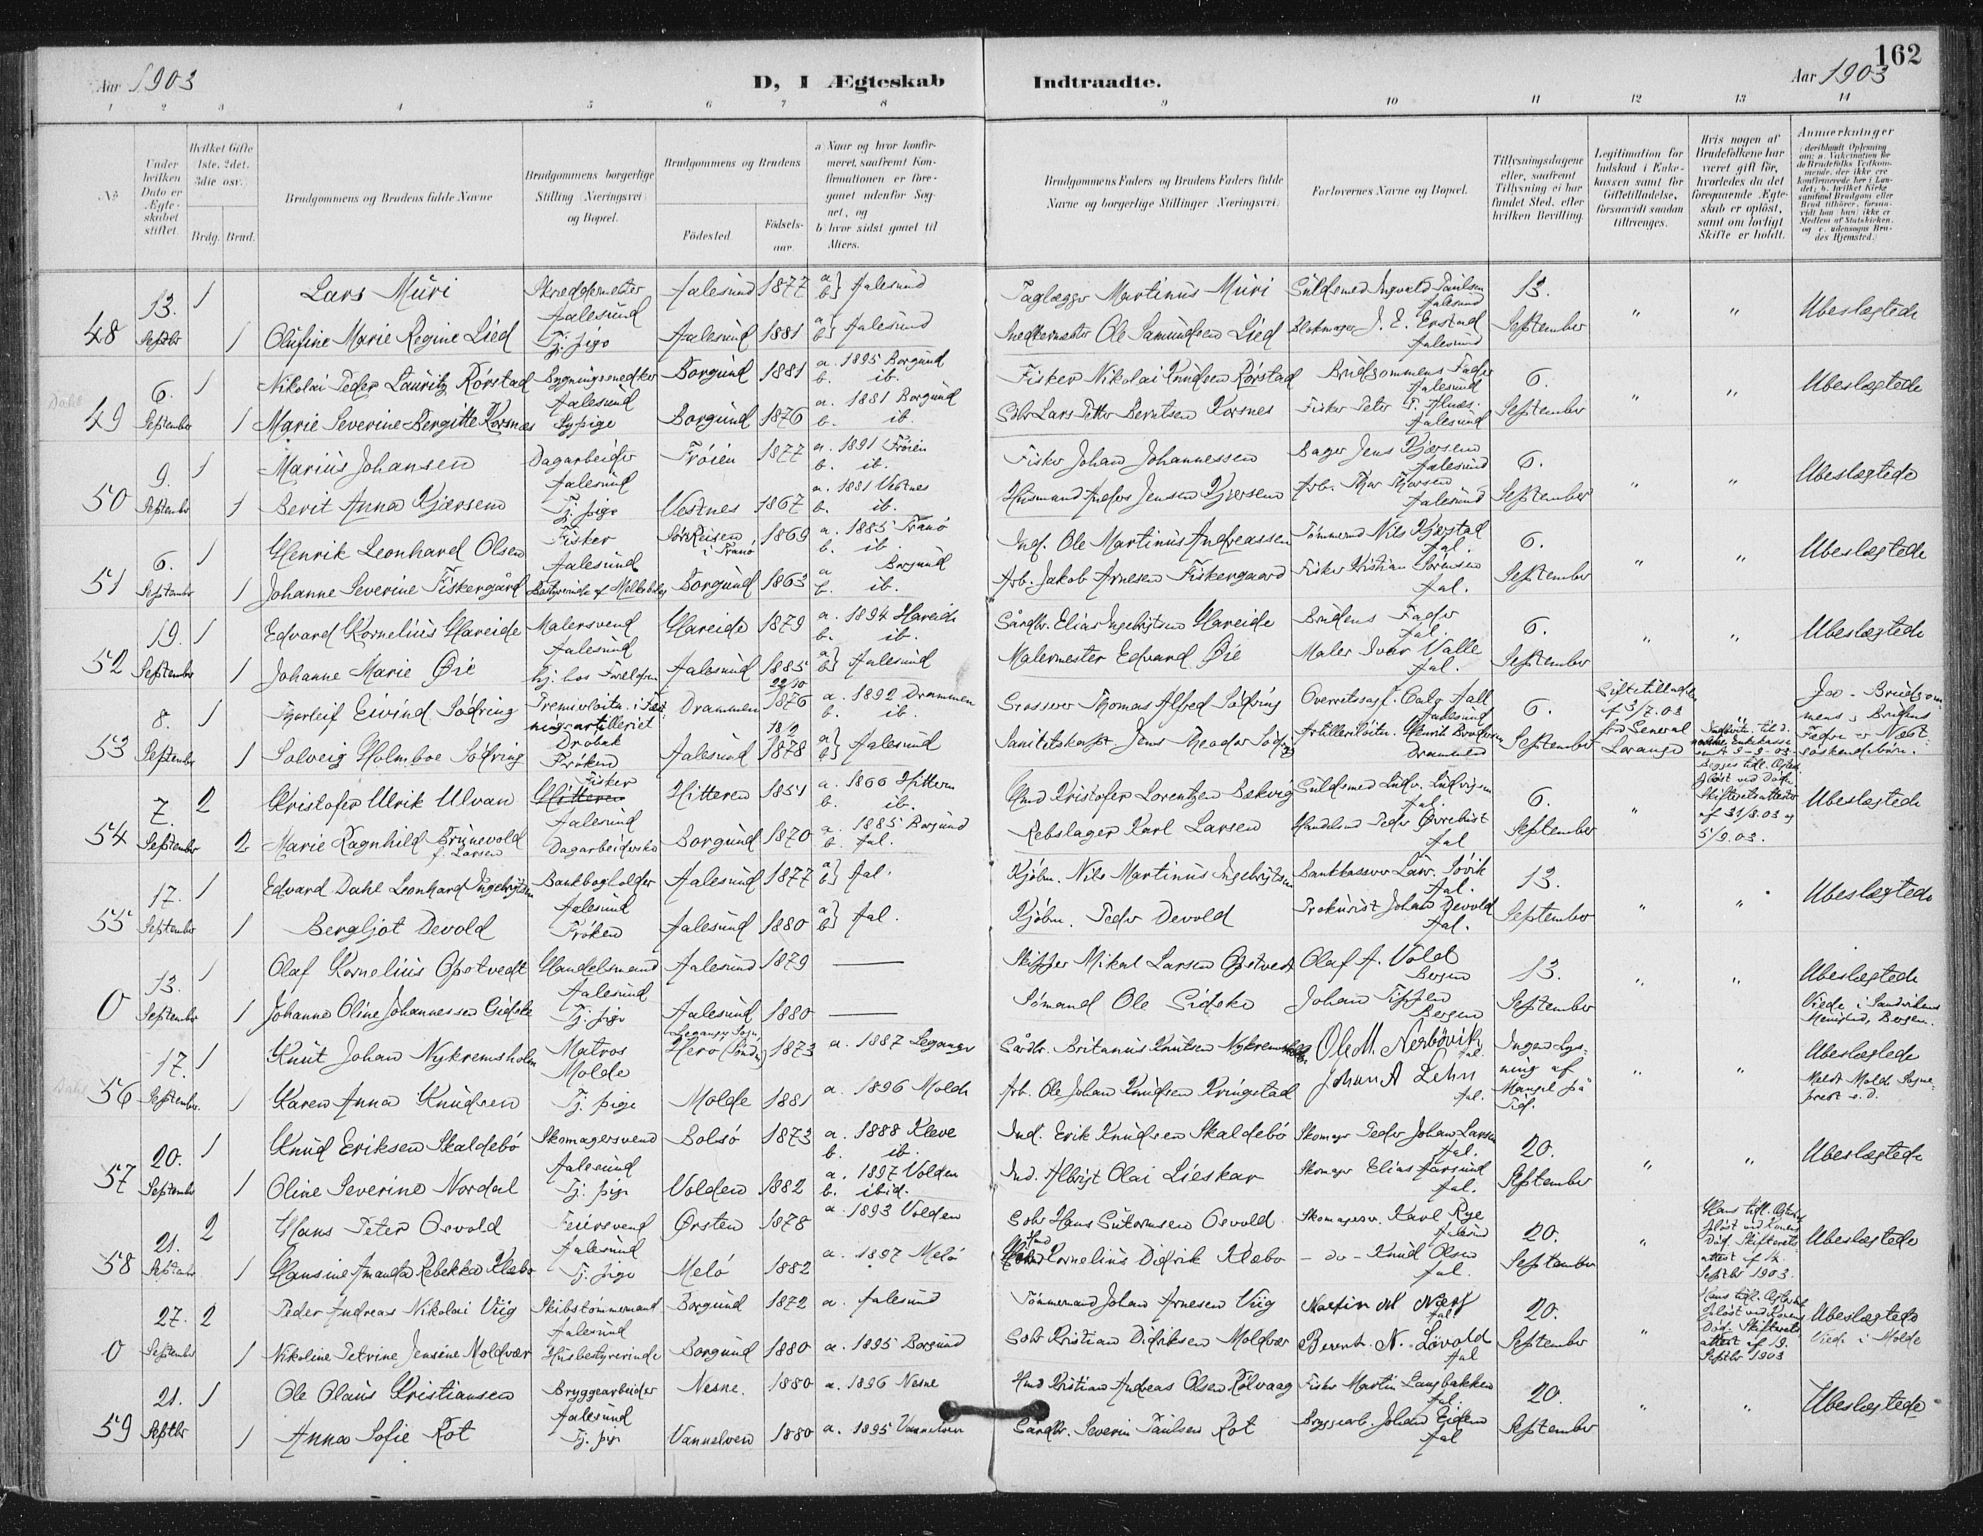 162
Aar 1903
D, I Ægteskab Indtraadte.
Aar 1903
1 2 3 4 5 6 7 8 9 10 11 12 13 14
No
Under hvilken Dato er Ægteskabet stiftet.
Hvilket Gifte 1ste, 2det, 3die osv.
Brdg. Brud.
Brudgommens og Brudens fulde Navne
Brudgommens borgerlige Stilling (Næringsvei) og Bopæl.
Brudgommens og Brudens
Fødested.
Fødselsaar.
a Naar og hvor konfirmeret, saafremt Konfirmationen er foregaaet udenfor Sognet, og
b hvor sidst gaaet til Alters.
Brudgommens Faders og Brudens Faders fulde Navne og borgerlige Stillinger (Næringsvei).
Forlovernes Navne og Bopæl.
Tillysningsdagene eller, saafremt Tillysning ei har fundet Sted, efter hvilken Bevilling.
Legitimation for Indskud i Enkekassen samt for Giftetilladelse, forsaavidt saadan tiltrænges.
Hvis nogen af Brudefolkene har været gift før, hvorledes da det foregaaende Ægteskab er opløst, samt om lovligt Skifte er holdt.
Anmerkninger
48 13. 1 Lars Muri Skreddermester Aalesund 1877 a b} Aalesund Taglægger Martinus Muri Guldsmed Ingvald Paulsen Aalesund 13. " " Ubeslægtede
Septbr 1 Olufine Marie Regine Lied Aalesund Tj. pige Aalesund 1881 a b} Aalesund Snedkermester Ole Samundsen Lied Blokmager J. E. Enstad Aalesund September
49 6. 1 Nikolai Peder Lauritz Rørstad Bygningssnedker Borgund 1881 a. 1895 Borgund b. ib. Fisker Nikolai Knudsen Rørstad Brudgommens Fader Aalesund 6. " " Ubeslægtede
Dahl
September 1 Marie Severine Bergitte Korsnes Aalesund Sypige Borgund 1876 a. 1881 Borgund b. ib. Selv Lars Petter Berntsen Korsnes Fisker Peter P. Alnæs. Aalesund September
50 9. 1 Marius Johansen Dagarbeider Frøien 1877 a. 1891 Frøien b. ib. Fisker Johan Johannessen Bager Jens Kjærsem Aalesund 6. " " Ubeslægtede
September 1 Berit Anna Kjærsem Aalesund Tj. pige Vestnes 1867 a. 1881 Vestnes b. ib. Husmand Anders Jensen Kjersem Arb. Aalesund September
51 6. 1 Henrik Leonhard Olsen Fisker i Tranø 1869 a. 1885 Tranø b. ib. Ind. Ole Martinus Andreassen Tømmermd Nils Kjærstad Aal. 6. " " Ubeslægtede
September 1 Johanne Severine Fiskergård Aalesund Bestyrerinde af Melkebutik Borgund 1863 a. Borgund b. ib. Arb. Jakob Arnesen Fiskergaard Fisker Kristian Sørensen Aal. September
52 19. 1 Edvard Kornelius Hareide Malersvend Hareide 1879 a. 1894 Hareide b. ib. Gårdbr. Elias Ingebrigtsen Hareide Brudens Fader Aal. 6. " " Ubeslægtede
September 1 Johanne Marie Øie Aalesund hj. hos Forældrene Aalesund 1885 a b} Aalesund Malermester Edvard Øie Maler Ivar Valle Aal. September
53 8. 1 Thorleif Eivind Sødring Premierløitn. i Fæstningsartilleriet Drammen 22/10 1876 a. 1892 Drammen b. ib. Grosserer Thomas Alfred Sødring Overretssagf. Aall Aalesund 6. Giftetilladelse af 3/7.03 fra General Lorange Jo - Brudgommens & Brudens Fædre er Næstsøskendebørn.
September 1 Solveig Holmboe Sødring Drøbak Frøken Aalesund 18/2 1878 a b} Aalesund Sanitetskapt. Jens Theodor Sødring Artilleriløitn. Henrik Drammen September
54 7. 2 Kristofer Ulrik Ulvan Fisker Hitteren 1851 a. 1866 Hitteren b. ib. Gmd Kristofer Lorentzen Bækvig Guldsmed Ludv. Ludvigsen Aal. 6. " Begges tidl. Ægtesk. opløst ved Død. Skifteretsattester af 31/8.03 og 5/9.03. Ubeslægtede
September 2 Marie Ragnhild Brunevold f. Larsen Aalesund Dagarbeiderske Borgund 1870 a. 1885 Borgund b. Aal. Rebslager Karl Larsen Handlsmd Peder Ørrehust Aal September
55 17. 1 Edvard Dahl Leonhard Ingebrigtsen Bankbogholder Aalesund 1877 a b} Aal. Kjøbm. Nils Martinus Ingebrigtsen Bankkasserer Laur. Søvik Aal. 13. " " Ubeslægtede
September 1 Bergljot Devold Aalesund Frøken Aalesund 1880 a b} Aal. Kjøbm. Peder Devold Prokurist Johan Devold Aal. September
0 13. 1 Olaf Kornelius Opstvedt Handelsmand Aalesund 1879 — Skipper Mikal Larsen Opstvedt Olaf A. Vold Bergen 13. " " Ubeslægtede
September 1 Johanne Oline Johannessen Gidske Aalesund Tj. pige Aalesund 1880 — Sømand Ole Gidske Johan Bergen September Viede i Sandvikens Menighed, Bergen.
56 17. 1 Knut Johan Nykremsholm Matros Herø 1873 a. 1887 Leganger Gårdbr. Britanus Knutsen Nykremsholm Ole M. Nerbøvik Aal. Ingen Lysning af Mangel på Tid. " " Ubeslægtede
Dahl
September. 1 Karen Anna Knudsen Molde Tj. pige Molde 1881 a. 1896 Molde Arb. Ole Johan Knudsen Kringstad Johan A Lehn Aal. Meldt Molde Sogneprest s. d.
57 20. 1 Knud Eriksen Skaldebø Skomagersvend Bolsø 1873 a. 1888 Kleve b. ib. Ind. Erik Knudsen Skaldebø Skomager Peder Johan Larsen Aal. 20. " " Ubeslægtede
September 1 Oline Severine Nordal Aalesund Tj. pige Volden 1882 a. 1897 Volden b. ibid. Ind. Albrigt Olai Lieskar Skomager Elias Aarsund Aal. September
58 21. 2 Hans Peter Osvold Feiersvend Ørsten 1878 a. 1893 Volden Selv Hans Osvold Skomagersv. Karl Rye Aalesund 20. " Hans tidl. Ægtesk. opløst ved Konens Død. Skifterets attest af Septbr 1903. Ubeslægtede
Septbr 1 Hansine Amanda Rebekka Klæbo Aalesund Tj. pige Melø 1882 a. 1897 Melø Kornelius Didrik Klæbo - do - Knud Olsen Aal. September
0 27. 2 Peder Andreas Nikolai Viig Skibstømmermand Borgund 1872 a. Aalesund Tømmermand Johan Arnesen Viig Martin M Næss Aal. 20. " Hans tidl. Ægtesk. opløst ved Konens Død. Skifterets attest af 19. Septbr 1903 Ubeslægtede
September 1 Nikoline Petrine Jensine Moldvær Aalesund Husbestyrerinde Borgund 1880 a. 1895 Borgund Selv Kristian Didriksen Moldvær Berent N. Løvold Aal September Viede i Molde
59 21. 1 Ole Olaus Kristiansen Bryggearbeider Nesne. 1880 a. 1896 Nesne Hmd Kristian Andreas Olsen Rølvaag Fisker Martin Langbakken Aal. 20. " " Ubeslægtede
Septbr 1 Anna Sofie Rot Aalesund Tj. pige Vannelven 1880 a. 1895 Vannelven Gårdbr. Severin Paulsen Rot Bryggearb. Johan Eiden Aal September